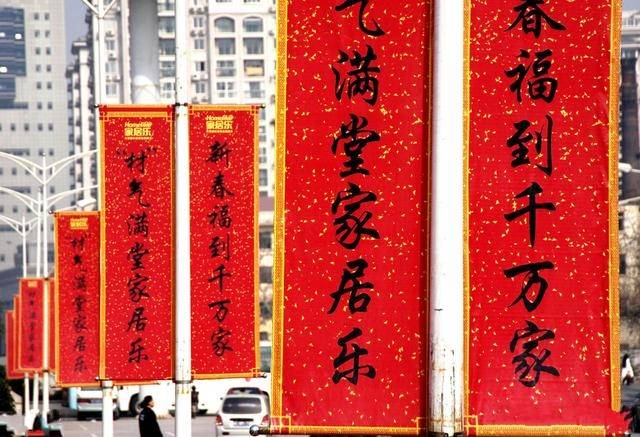 气满堂家居乐
春福到千万家
HomeMart
家居乐
"材"气满堂家居乐
HomeMart
家居乐
新春福到千万家
"材"气满堂家居乐